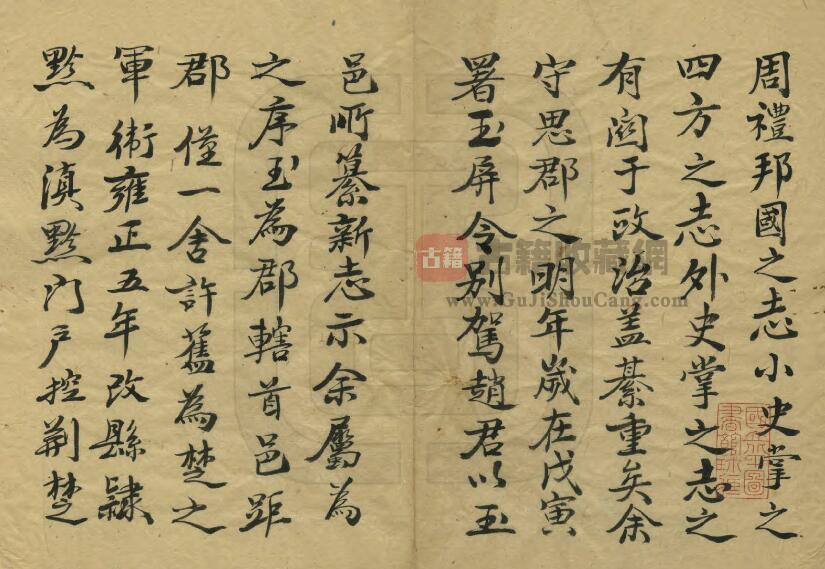 周禮邦國之志小史掌之
四方之志外史掌之志之
有關于政治蓋綦重矣余
守思郡之明年歲在戊寅
署玉屏令别駕趙君以玉
邑所纂新志示余屬為
之序玉為郡轄首邑距
郡僅一舍許舊為楚之
軍衛雍正五年改縣隸
黔為滇黔門户控荆楚
古籍
古籍收藏網
www.GuJiShouCang.com